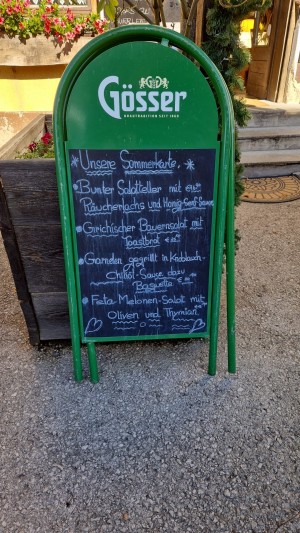 Gösser
BRAUTRADITION SEIT 1860
* Unsere Sommerkarte. *
• Bunter Salatteller mit
Räucherlachs und Honig-Senf Sauce
• Girichischer Bauernsalat mit
Toastbrot €
• Garnelen gegrillt in Knoblauch-
Chilliöl-Sauce dazu
Baguette €
• Feta Melonen-Salat mit
Oliven und Thymian